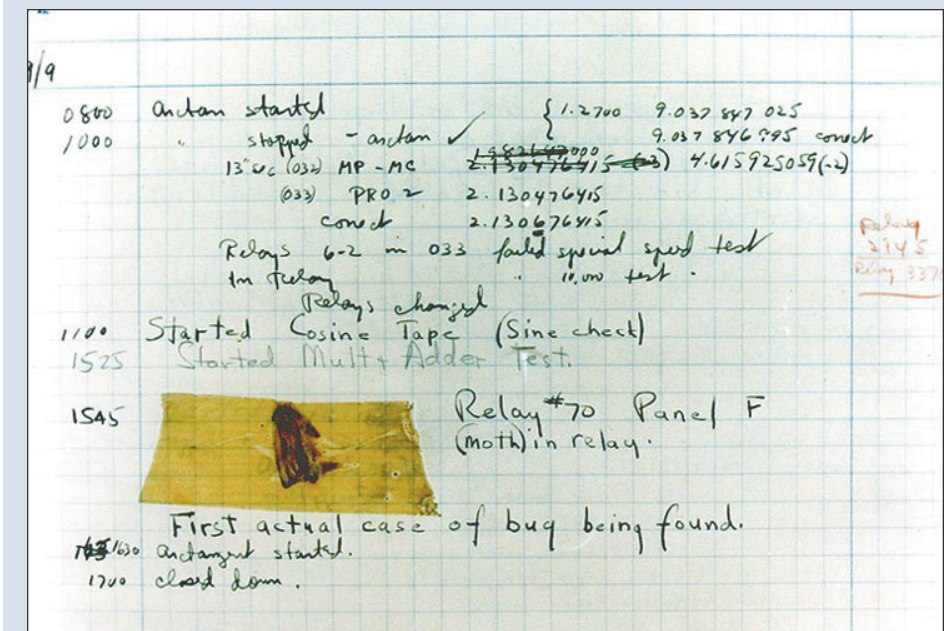 9/9
0800 arctan started { 1.2700 9.037 847 025
1000 " stopped - arctan ✓ 9.037 846 995 correct
13"uc (032) MP - MC 2.130476415 (-3) 4.615925059(-2)
(033) PRO 2 2.130476415
correct 2.130676415
Relays 6-2 in 033 failed special speed test
In Relay " 10,000 test .
Relays changed
Relay
2145
Relay 337
1100 Started Cosine Tape (Sine check)
1525 Started Mult + Adder Test.
1545 Relay #70 Panel F
(moth) in relay.
First actual case of bug being found.
1630 arctangent started.
1700 closed down .